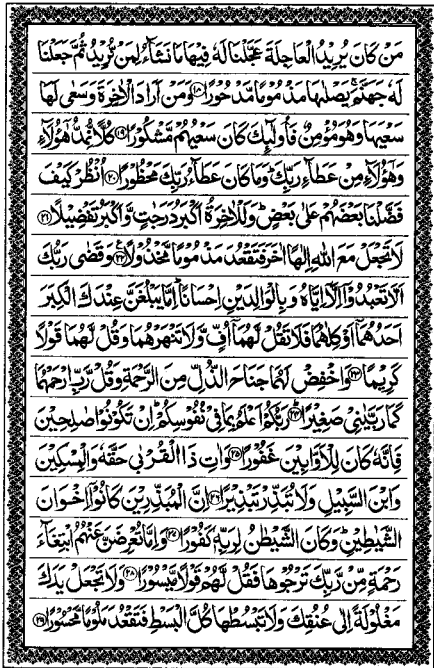 مَنْ كَانَ يُرِيْدُ الْعَاجِلَةَ عَجَّلْنَا لَهٗ فِيْهَا مَا نَشَآءُ لِمَنْ نُّرِيْدُ ثُمَّ جَعَلْنَا
لَهٗ جَهَنَّمَ ۚ يَصْلٰىهَا مَذْمُوْمًا مَّدْحُوْرًا ﴿۱۸﴾ وَمَنْ اَرَادَ الْاٰخِرَةَ وَسَعٰى لَهَا
سَعْيَهَا وَهُوَ مُؤْمِنٌ فَاُولٰٓئِكَ كَانَ سَعْيُهُمْ مَّشْكُوْرًا ﴿۱۹﴾ كُلًّا نُّمِدُّ هٰٓؤُلَآءِ
وَهٰٓؤُلَآءِ مِنْ عَطَآءِ رَبِّكَ ؕ وَمَا كَانَ عَطَآءُ رَبِّكَ مَحْظُوْرًا ﴿۲۰﴾ اُنْظُرْ كَيْفَ
فَضَّلْنَا بَعْضَهُمْ عَلٰى بَعْضٍ ؕ وَلَلْاٰخِرَةُ اَكْبَرُ دَرَجٰتٍ وَّاَكْبَرُ تَفْضِيْلًا ﴿۲۱﴾
لَا تَجْعَلْ مَعَ اللّٰهِ اِلٰهًا اٰخَرَ فَتَقْعُدَ مَذْمُوْمًا مَّخْذُوْلًا ﴿۲۲﴾ وَقَضٰى رَبُّكَ
اَلَّا تَعْبُدُوْٓا اِلَّآ اِيَّاهُ وَبِالْوَالِدَيْنِ اِحْسَانًا ؕ اِمَّا يَبْلُغَنَّ عِنْدَكَ الْكِبَرَ
اَحَدُهُمَآ اَوْ كِلٰهُمَا فَلَا تَقُلْ لَّهُمَآ اُفٍّ وَّلَا تَنْهَرْهُمَا وَقُلْ لَّهُمَا قَوْلًا
كَرِيْمًا ﴿۲۳﴾ وَاخْفِضْ لَهُمَا جَنَاحَ الذُّلِّ مِنَ الرَّحْمَةِ وَقُلْ رَّبِّ ارْحَمْهُمَا
كَمَا رَبَّيٰنِيْ صَغِيْرًا ﴿۲۴﴾ رَبُّكُمْ اَعْلَمُ بِمَا فِيْ نُفُوْسِكُمْ ؕ اِنْ تَكُوْنُوْا صٰلِحِيْنَ
فَاِنَّهٗ كَانَ لِلْاَوَّابِيْنَ غَفُوْرًا ﴿۲۵﴾ وَاٰتِ ذَا الْقُرْبٰى حَقَّهٗ وَالْمِسْكِيْنَ
وَابْنَ السَّبِيْلِ وَلَا تُبَذِّرْ تَبْذِيْرًا ﴿۲۶﴾ اِنَّ الْمُبَذِّرِيْنَ كَانُوْٓا اِخْوَانَ
الشَّيٰطِيْنِ ؕ وَكَانَ الشَّيْطٰنُ لِرَبِّهٖ كَفُوْرًا ﴿۲۷﴾ وَاِمَّا تُعْرِضَنَّ عَنْهُمُ ابْتِغَآءَ
رَحْمَةٍ مِّنْ رَّبِّكَ تَرْجُوْهَا فَقُلْ لَّهُمْ قَوْلًا مَّيْسُوْرًا ﴿۲۸﴾ وَلَا تَجْعَلْ يَدَكَ
مَغْلُوْلَةً اِلٰى عُنُقِكَ وَلَا تَبْسُطْهَا كُلَّ الْبَسْطِ فَتَقْعُدَ مَلُوْمًا مَّحْسُوْرًا ﴿۲۹﴾